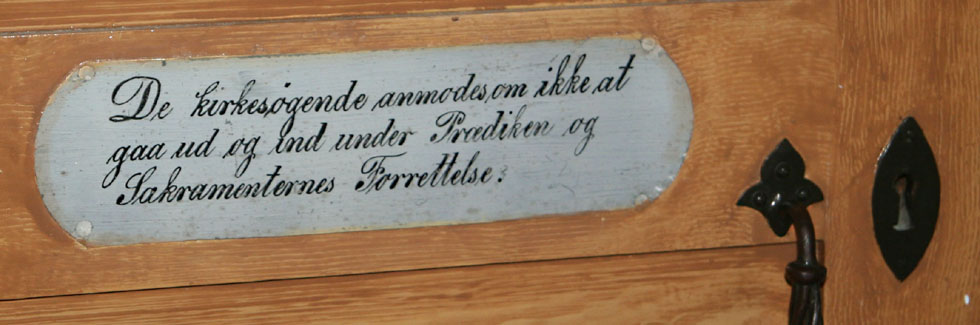 De kirkesøgende anmodes, om ikke at
gaa ud og ind under Prædiken og
Sakramenternes Forrettelse.